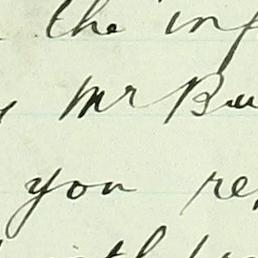 the inf
Mr Bu
you re